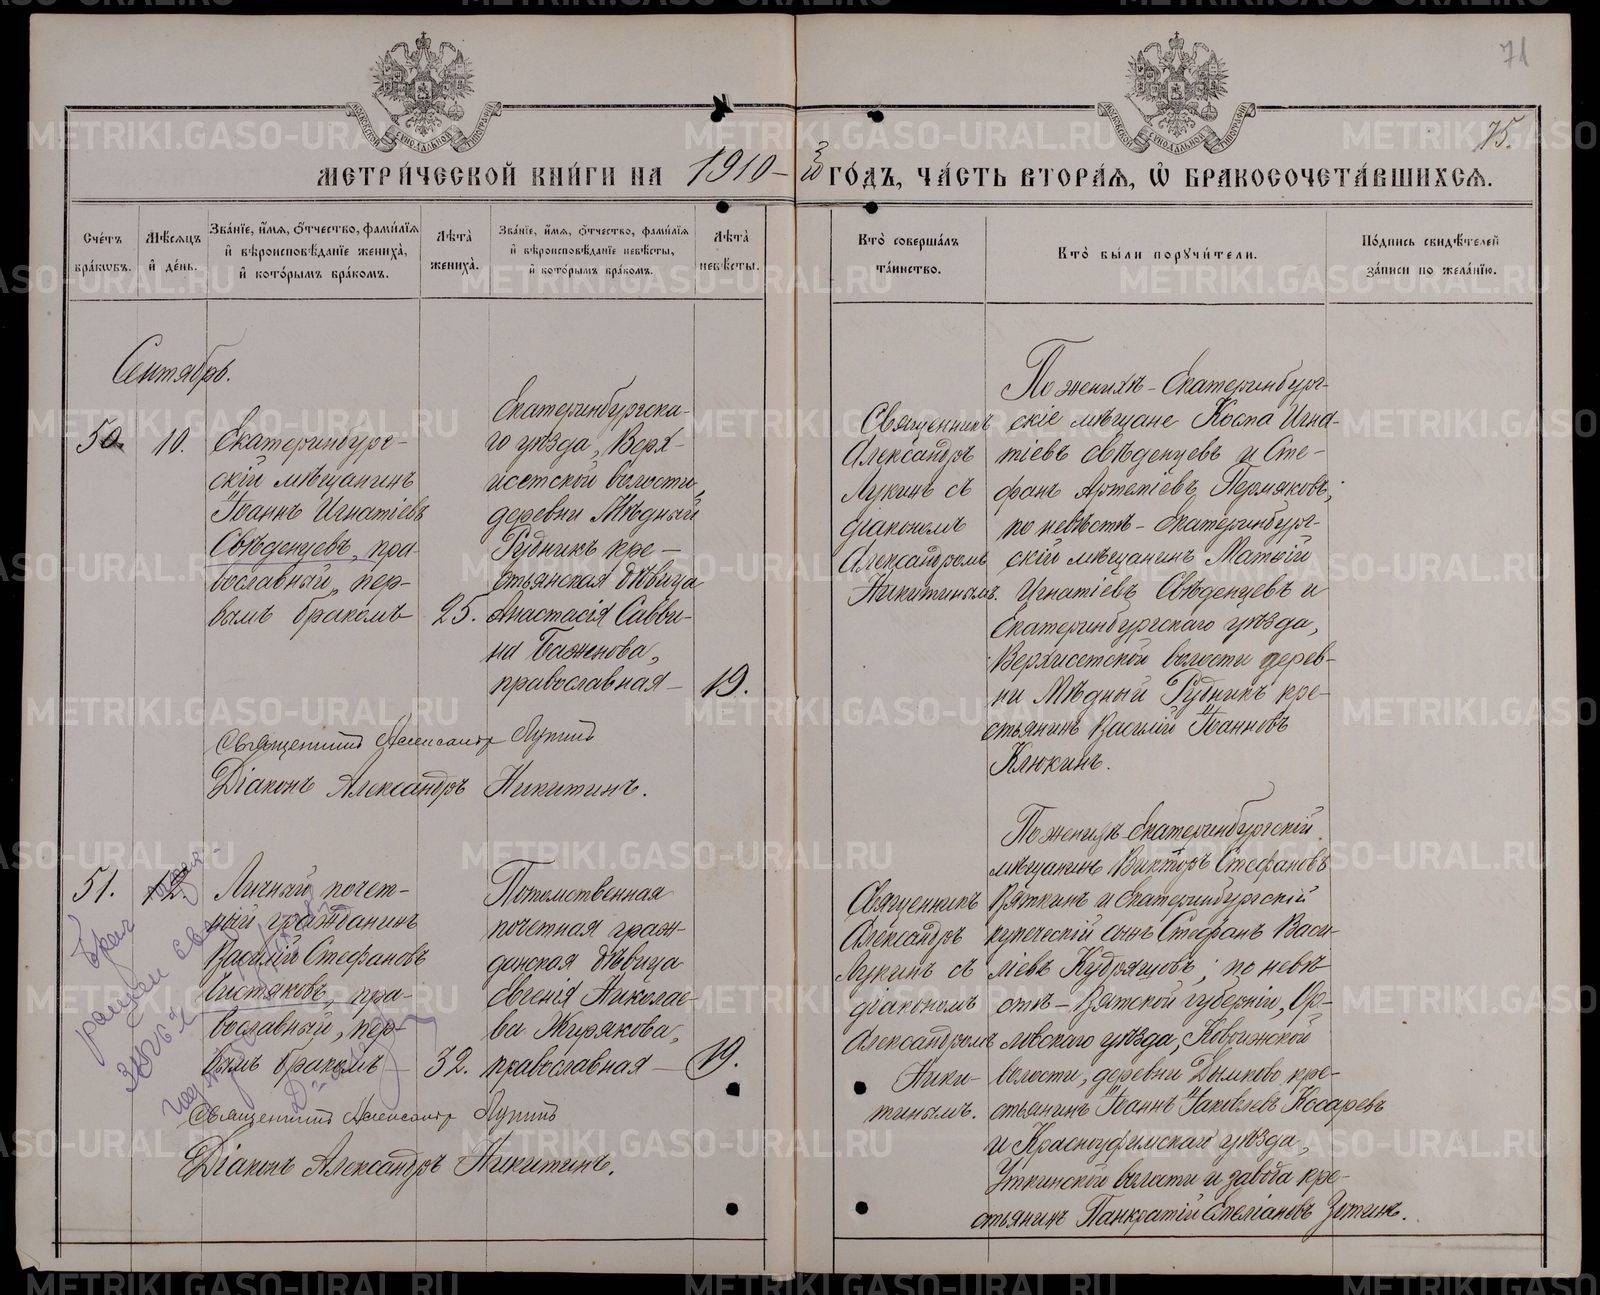 71
75.
МЕТРИ́ЧЕСКОЙ КНИ́ГИ НА 1910-й ГО́ДЪ, ЧА́СТЬ ВТОРА́Я, Ѡ БРАКОСОЧЕТА́ВШИХСЯ.
Сче́тъ бра́кѡвъ.
Мѣ́сяцъ и҆ де́нь.
Зва́нїе, и҆́мя, ѻ҆́тчество, фами́лїя
и҆ вѣроисповѣ́данїе жениха̀,
и҆ кото́рымъ бра́комъ.
Лѣ́та жениха̀.
Зва́нїе, и҆́мя, ѻ҆́тчество, фами́лїя
и҆ вѣроисповѣ́данїе невѣ́сты,
и҆ кото́рымъ бра́комъ.
Лѣ́та невѣ́сты.
Кто̀ соверша́лъ
та́инство.
Кто̀ бы́ли порꙋчи́тели.
По́дпись свидѣ́телей
за́писи по жела́нїю.
Сентябрь.
50.
10.
Екатеринбург-
скій мѣщанинъ
Іоаннъ Игнатіевъ
Свѣденцевъ, пра-
вославный, пер-
вымъ бракомъ
25.
Екатеринбургска-
го уѣзда, Верх-
исетской волости,
деревни Мѣдный
Рудникъ кре-
стьянская дѣвица
Анастасія Савви-
на Баженова,
православная –
19.
Священникъ Александръ Лукинъ
Діаконъ Александръ Никитинъ.
Священникъ
Александръ
Лукинъ съ
діакономъ
Александромъ
Никитинымъ.
По женихѣ – Екатеринбург-
скіе мѣщане Косма Игна-
тіевъ Свѣденцевъ и Сте-
фанъ Артеміевъ Пермяковъ;
по невѣстѣ – Екатеринбург-
скій мѣщанинъ Матѳій
Игнатіевъ Свѣденцевъ и
Екатеринбургскаго уѣзда,
Верхисетской волости дерев-
ни Мѣдный Рудникъ кре-
стьянинъ Василій Іоанновъ
Клюкинъ.
51.
12.
Личный почет-
ный гражданинъ
Василій Стефановъ
Чистяковъ, пра-
вославный, пер-
вымъ бракомъ –
32.
Потомственная
почетная граж-
данская дѣвица
Евгенія Николае-
ва Жирякова,
православная –
19.
Брак
Священникъ Александръ Лукинъ
Діаконъ Александръ Никитинъ.
Священникъ
Александръ
Лукинъ съ
діакономъ
Александромъ
Ники-
тинымъ.
По женихѣ Екатеринбургскій
мѣщанинъ Викторъ Стефановъ
Вяткинъ и Екатеринбургскій
купеческій сынъ Стефанъ Васи-
ліевъ Кудряшовъ; по невѣ-
стѣ – Вятской губерніи, Ор-
ловскаго уѣзда,
волости, деревни Дымково кре-
стьянинъ Іоаннъ Іаковлевъ Косаревъ
и Красноуфимскаго уѣзда,
Уткинской волости и завода кре-
стьянинъ Панкратій Емеліановъ Зотинъ.
METRIKI.GASO-URAL.RU